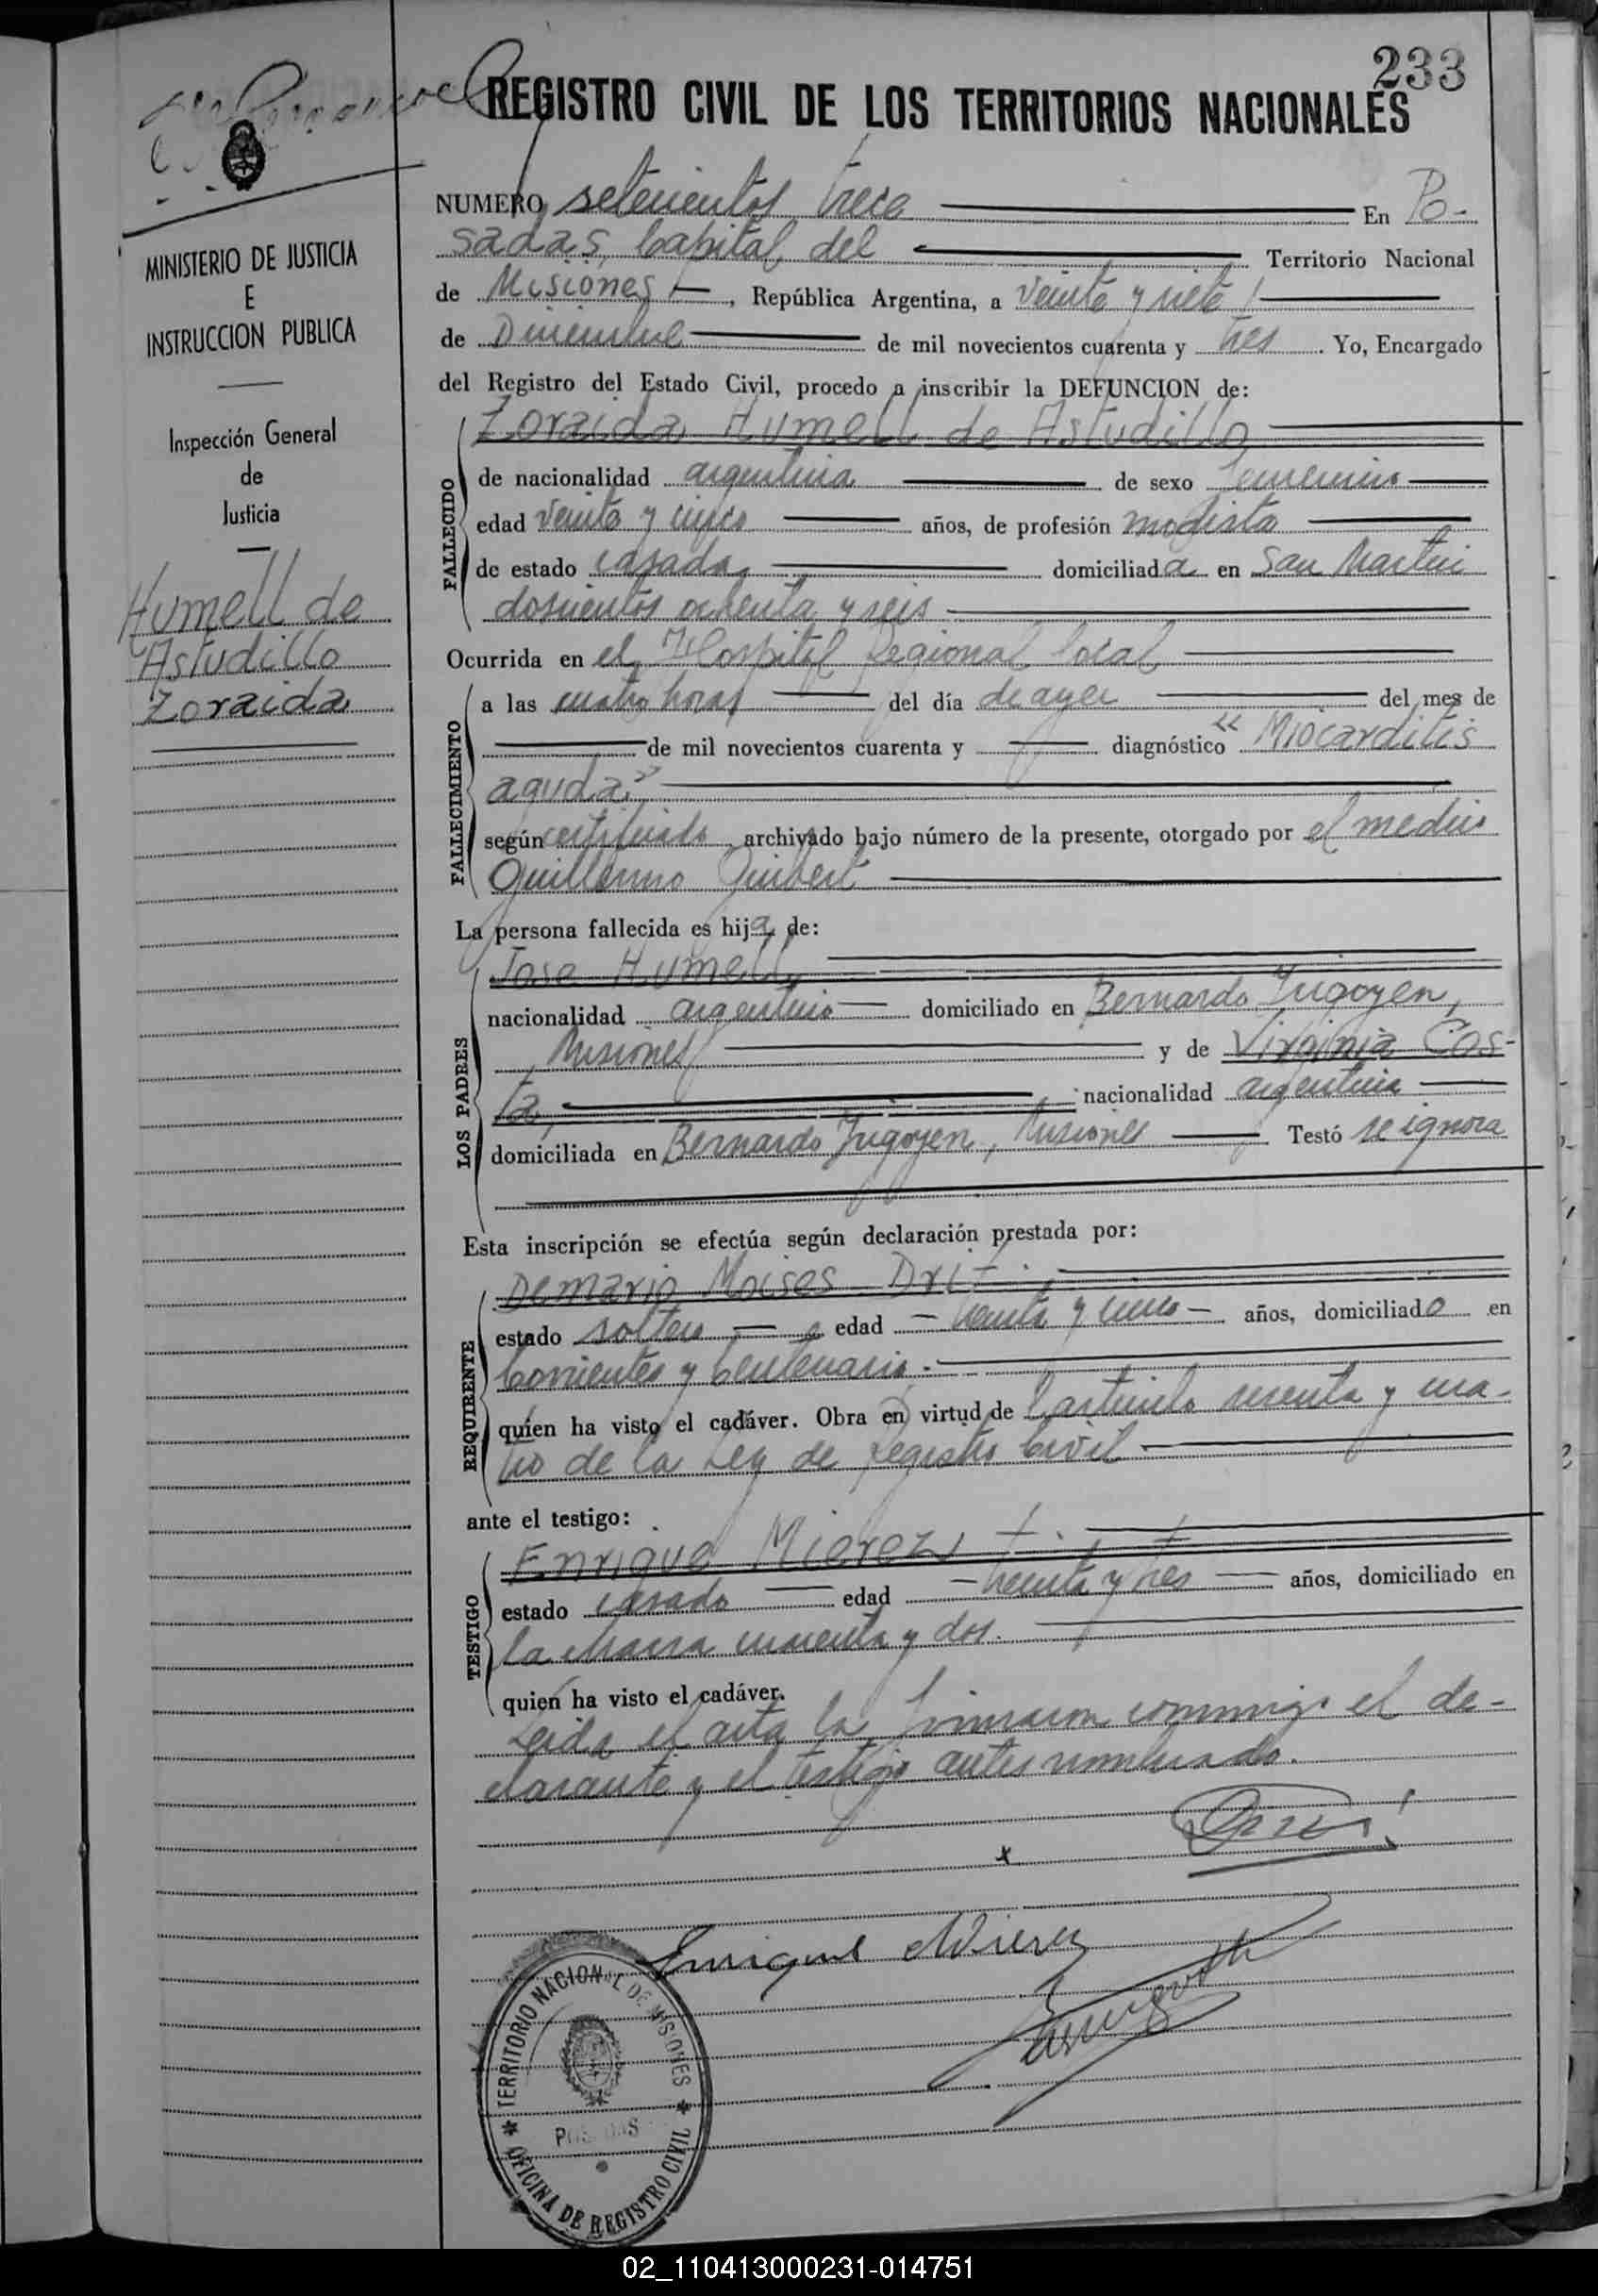 233
REGISTRO CIVIL DE LOS TERRITORIOS NACIONALES
MINISTERIO DE JUSTICIA
E
INSTRUCCION PUBLICA
Inspección General
de
Justicia
Humell de
Astudillo
Zoraida
NUMERO setecientos trece En Po-
sadas, Capital del Territorio Nacional
de Misiones, República Argentina, a veinte y siete
de Diciembre de mil novecientos cuarenta y tres. Yo, Encargado
del Registro del Estado Civil, procedo a inscribir la DEFUNCION de:
FALLECIDO
Zoraida Humell de Astudillo
de nacionalidad argentina de sexo femenino
edad veinte y cinco años, de profesión modista
de estado casada domiciliada en San Martin
doscientos ochenta y seis
Ocurrida en el Hospital Regional local
FALLECIMIENTO
a las cuatro horas del día de ayer del mes de
de mil novecientos cuarenta y diagnóstico "Miocarditis
aguda"
según certificado archivado bajo número de la presente, otorgado por el medico
Guillermo Guibert
La persona fallecida es hija de:
LOS PADRES
Jose Humell,
nacionalidad argentino domiciliado en Bernardo Irigoyen,
Misiones y de Virginia Cos-
ta, nacionalidad argentina
domiciliada en Bernardo Irigoyen, Misiones Testó se ignora
Esta inscripción se efectúa según declaración prestada por:
REQUIRENTE
Demario Moises Dri
estado soltero edad veinte y cinco años, domiciliado en
Corrientes y Centenario.
quien ha visto el cadáver. Obra en virtud de l'articulo sesenta y cua-
tro de la Ley de Registro Civil
ante el testigo:
TESTIGO
Enrique Mierez
estado casado edad treinta y tres años, domiciliado en
la cuarenta y dos.
quien ha visto el cadáver.
Leida el acta la firmaron conmigo el de-
clarante y el testigo antes nombrado.
x
Enrique Mierez
TERRITORIO NACIONAL DE MISIONES
POSADAS
OFICINA DE REGISTRO CIVIL
02_110413000231-014751